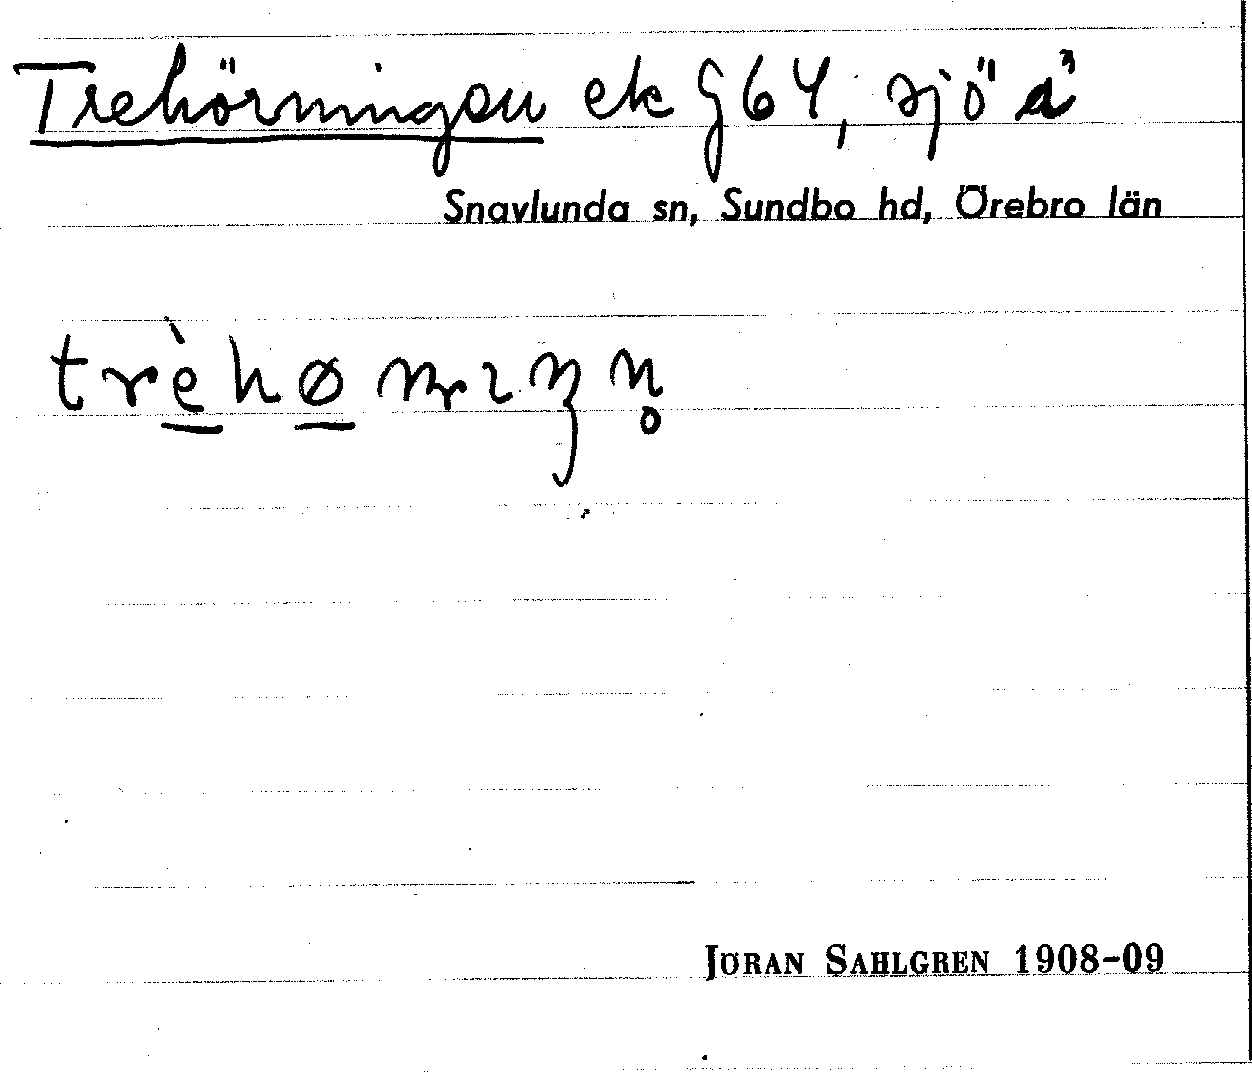 Trehörningen ek G64, sjö a³
Snavlunda sn, Sundbo hd, Örebro län
JÖRAN SAHLGREN 1908-09